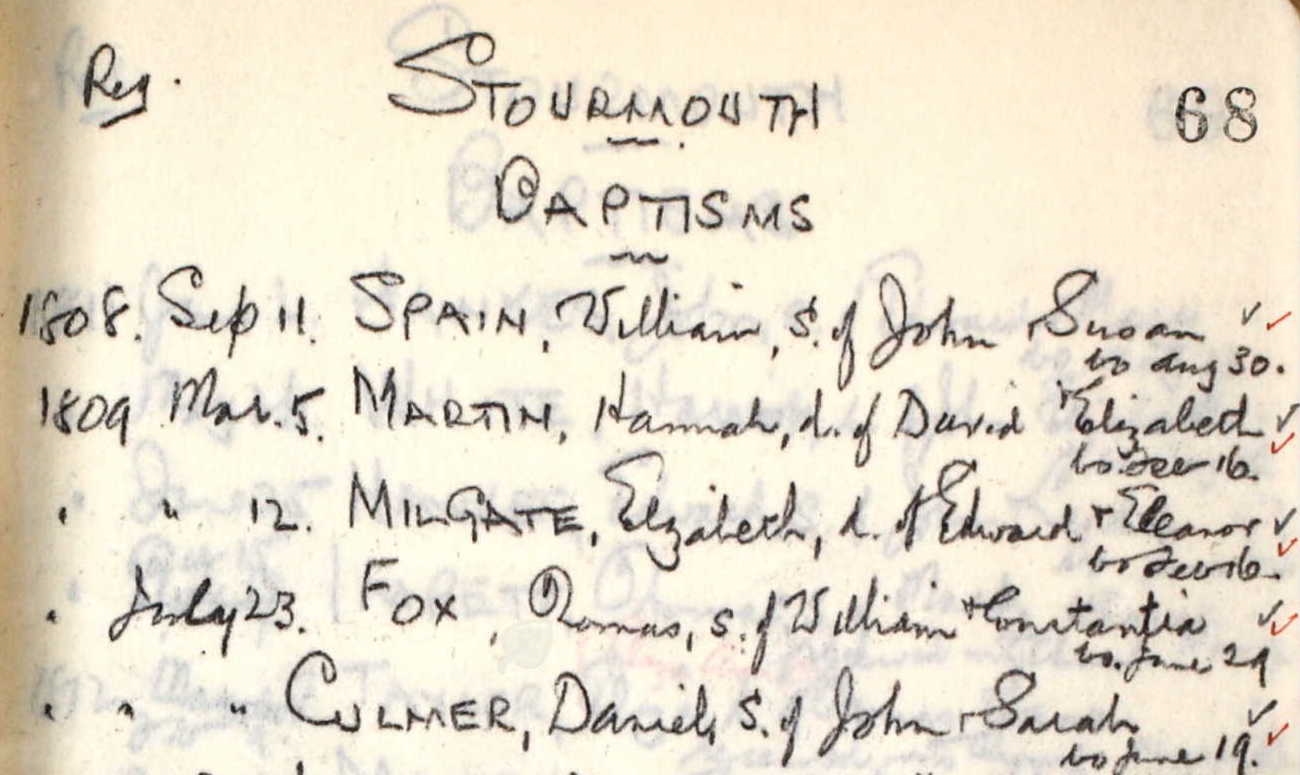 Reg. STOURMOUTH 68
BAPTISMS
1808. Sep 11. SPAIN, William, s. of John + Susan
bo Aug 30.
1809 Mar. 5. MARTIN, Hannah, d. of David + Elizabeth
bo. Feb 16.
" " 12. MILGATE, Elizabeth, d. of Edward + Eleanor
bo Feb 16.
" July 23. FOX, Thomas, s. of William + Constantia
bo. June 29
" " " CULMER, Daniel, s. of John + Sarah
bo June 19.